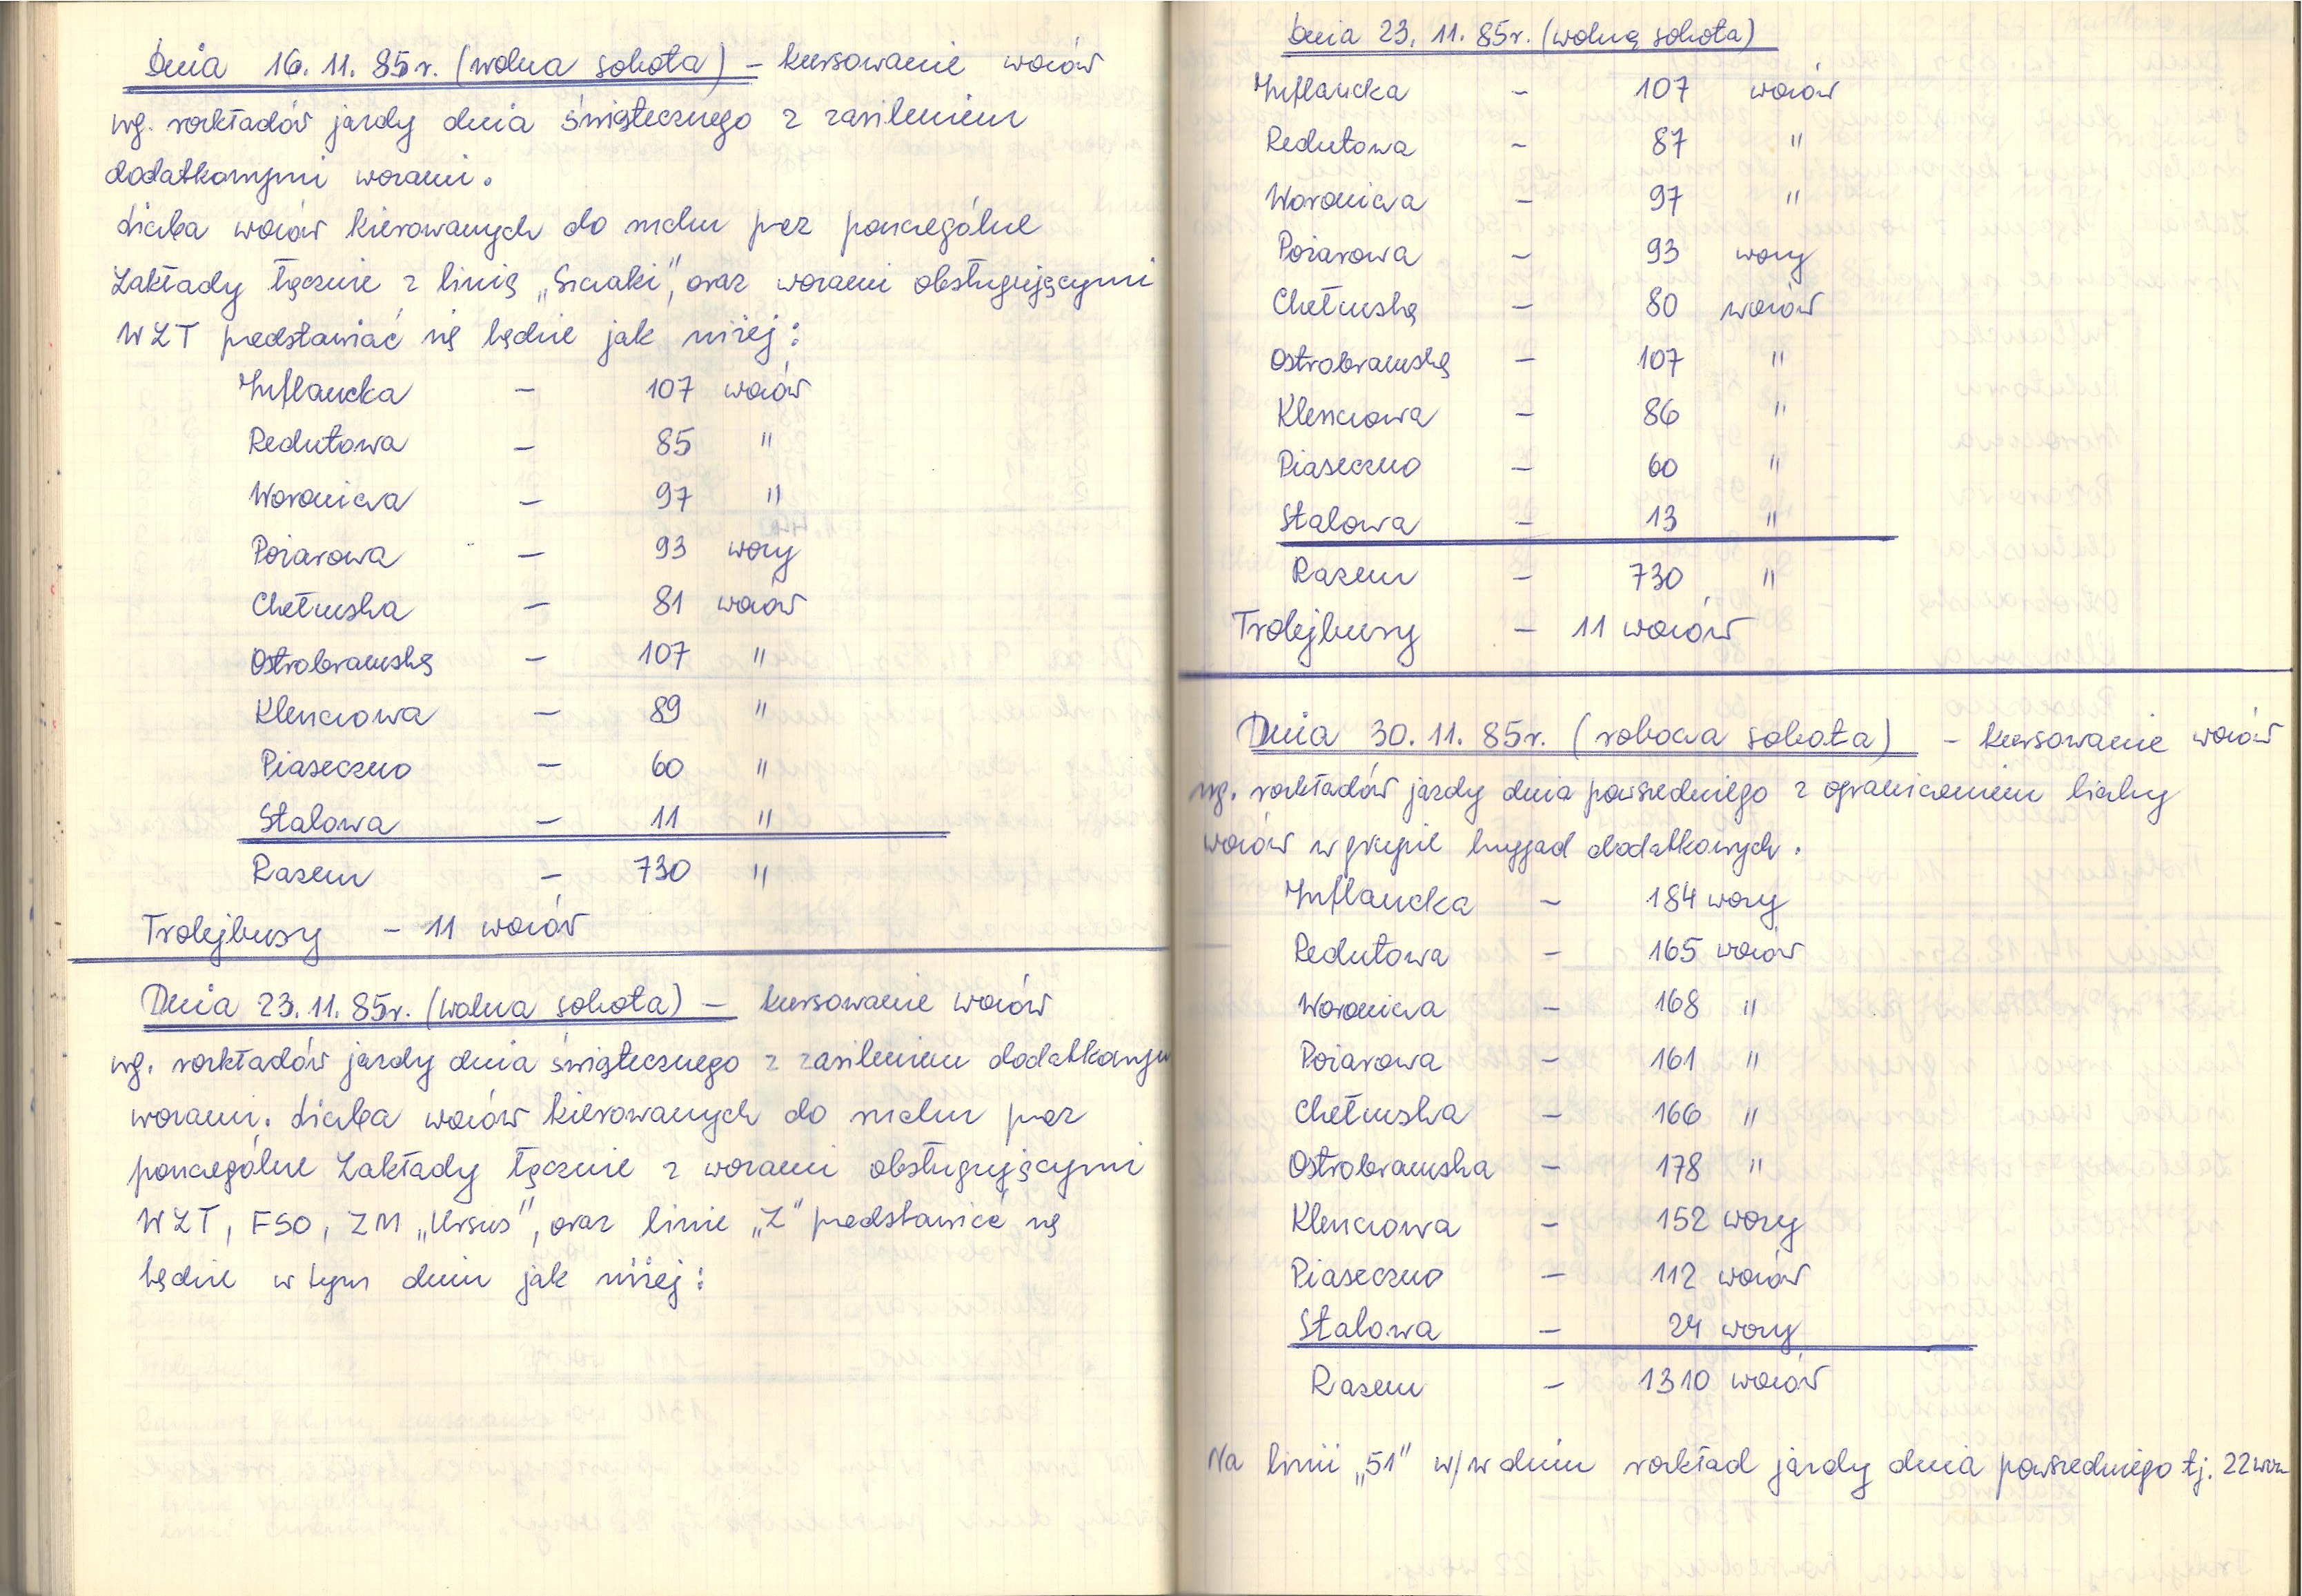 Dnia 16.11.85r. (wolna sobota) – kursowanie wozów
wg. rozkładów jazdy dnia świątecznego z zasileniem
dodatkowymi wozami.
Liczba wozów kierowanych do ruchu przez poszczególne
Zakłady łącznie z linią „Szczaki", oraz wozami obsługującymi
WZT przedstawiać się będzie jak niżej:
Inflancka – 107 wozów
Redutowa – 85 "
Woronicza – 97 "
Pożarowa – 93 wozy
Chełmska – 81 wozów
Ostrobramską – 107 "
Kleszczowa – 89 "
Piaseczno – 60 "
Stalowa – 11 "
Razem – 730 "
Trolejbusy – 11 wozów
Dnia 23.11.85r. (wolna sobota) – kursowanie wozów
wg. rozkładów jazdy dnia świątecznego z zasileniem dodatkowym
wozami. Liczba wozów kierowanych do ruchu przez
poszczególne Zakłady łącznie z wozami obsługującymi
WZT, FSO, ZM „Ursus", oraz linie „Z" przedstawiać się
będzie w tym dniu jak niżej:
Dnia 23.11.85r. (wolną sobota)
Inflancka – 107 wozów
Redutowa – 87 "
Woronicza – 97 "
Pożarowa – 93 wozy
Chełmską – 80 wozów
Ostrobramską – 107 "
Kleszczowa – 86 "
Piaseczno – 60 "
Stalowa – 13 "
Razem – 730 "
Trolejbusy – 11 wozów
Dnia 30.11.85r. (robocza sobota) – kursowanie wozów
wg. rozkładów jazdy dnia powszedniego z ograniczeniem liczby
wozów w grupie brygad dodatkowych.
Inflancka – 184 wozy
Redutowa – 165 wozów
Woronicza – 168 "
Pożarowa – 161 "
Chełmska – 166 "
Ostrobramska – 178 "
Kleszczowa – 152 wozy
Piaseczno – 112 wozów
Stalowa – 24 wozy
Razem – 1310 wozów
Na linii „51" w/w dniu rozkład jazdy dnia powszedniego tj. 22 woz